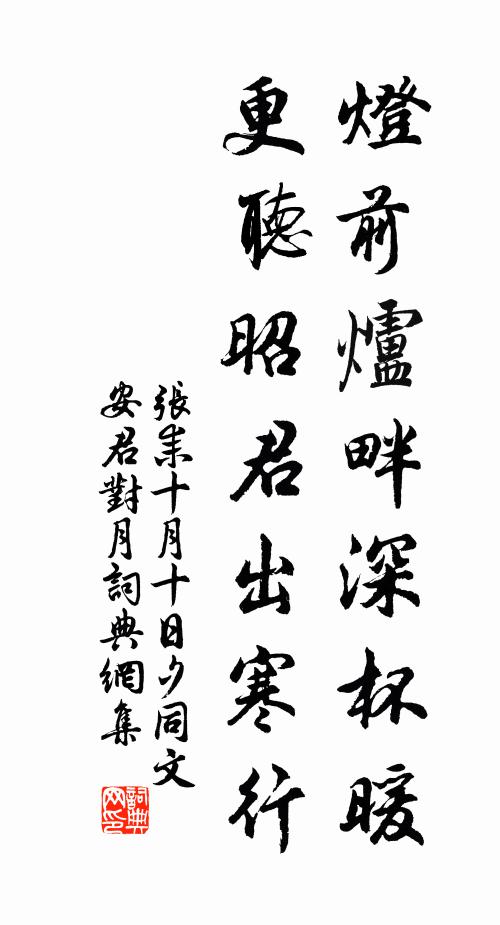 燈前爐畔深杯暖
更聽昭君出寒行
張耒十月十日夕同文
安君對月詞典網集
詞典网印